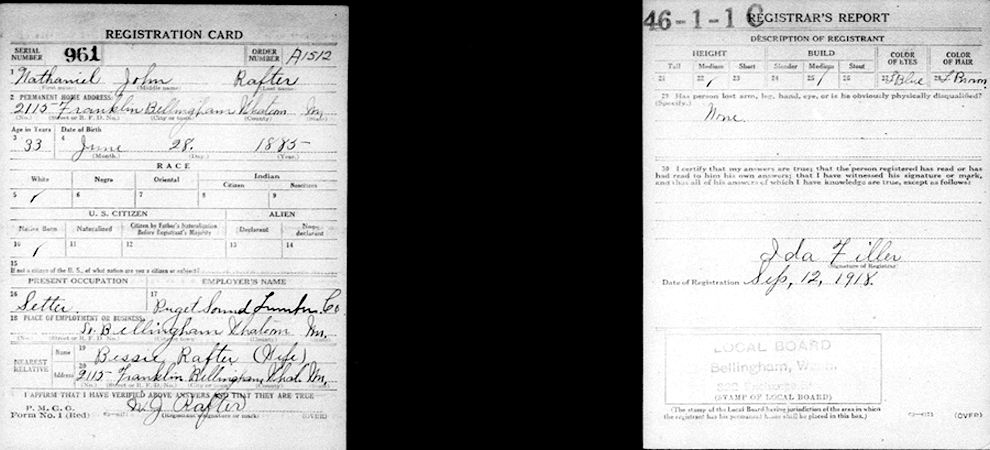 REGISTRATION CARD
SERIAL NUMBER 961 ORDER NUMBER A1512
1 Nathaniel John Rafter
(First name) (Middle name) (Last name)
2 PERMANENT HOME ADDRESS:
2115 Franklin Bellingham Whatcom Wn.
(No.) (Street or R. F. D. No.) (City or town) (County) (State)
Age in Years Date of Birth
3 33 4 June 28. 1885
(Month.) (Day.) (Year.)
RACE
White Negro Oriental Indian
Citizen Noncitizen
5 / 6 7 8 9
U. S. CITIZEN ALIEN
Native Born Naturalized Citizen by Father's Naturalization Before Registrant's Majority Declarant Non-declarant
10 / 11 12 13 14
15
If not a citizen of the U. S., of what nation are you a citizen or subject?
PRESENT OCCUPATION EMPLOYER'S NAME
16 Setter. 17 Puget Sound Lumber Co
18 PLACE OF EMPLOYMENT OR BUSINESS:
Bellingham Whatcom Wn.
(No.) (Street or R. F. D. No.) (City or town) (County) (State)
NEAREST RELATIVE Name 19 Bessie Rafter (Wife)
Address 20 2115 Franklin Bellingham What. Wn.
(No.) (Street or R. F. D. No.) (City or town) (County) (State)
I AFFIRM THAT I HAVE VERIFIED ABOVE ANSWERS AND THAT THEY ARE TRUE
P. M. G. O.
Form No. 1 (Red) N. J. Rafter
(Registrant's signature or mark) (OVER)
46-1-1 C REGISTRAR'S REPORT
DESCRIPTION OF REGISTRANT
HEIGHT BUILD COLOR OF EYES COLOR OF HAIR
Tall Medium Short Slender Medium Stout
21 22 / 23 24 25 / 26 27 Blue 28 Brown
29 Has person lost arm, leg, hand, eye, or is he obviously physically disqualified?
(Specify.)
None.
30 I certify that my answers are true; that the person registered has read or has
had read to him his own answers; that I have witnessed his signature or mark,
and that all of his answers of which I have knowledge are true, except as follows:
Ida Filler
(Signature of Registrar)
Date of Registration Sep, 12, 1918.
LOCAL BOARD
Bellingham, Wash.
(STAMP OF LOCAL BOARD)
(The stamp of the Local Board having jurisdiction of the area in which
the registrant has his permanent home shall be placed in this box.) (OVER)